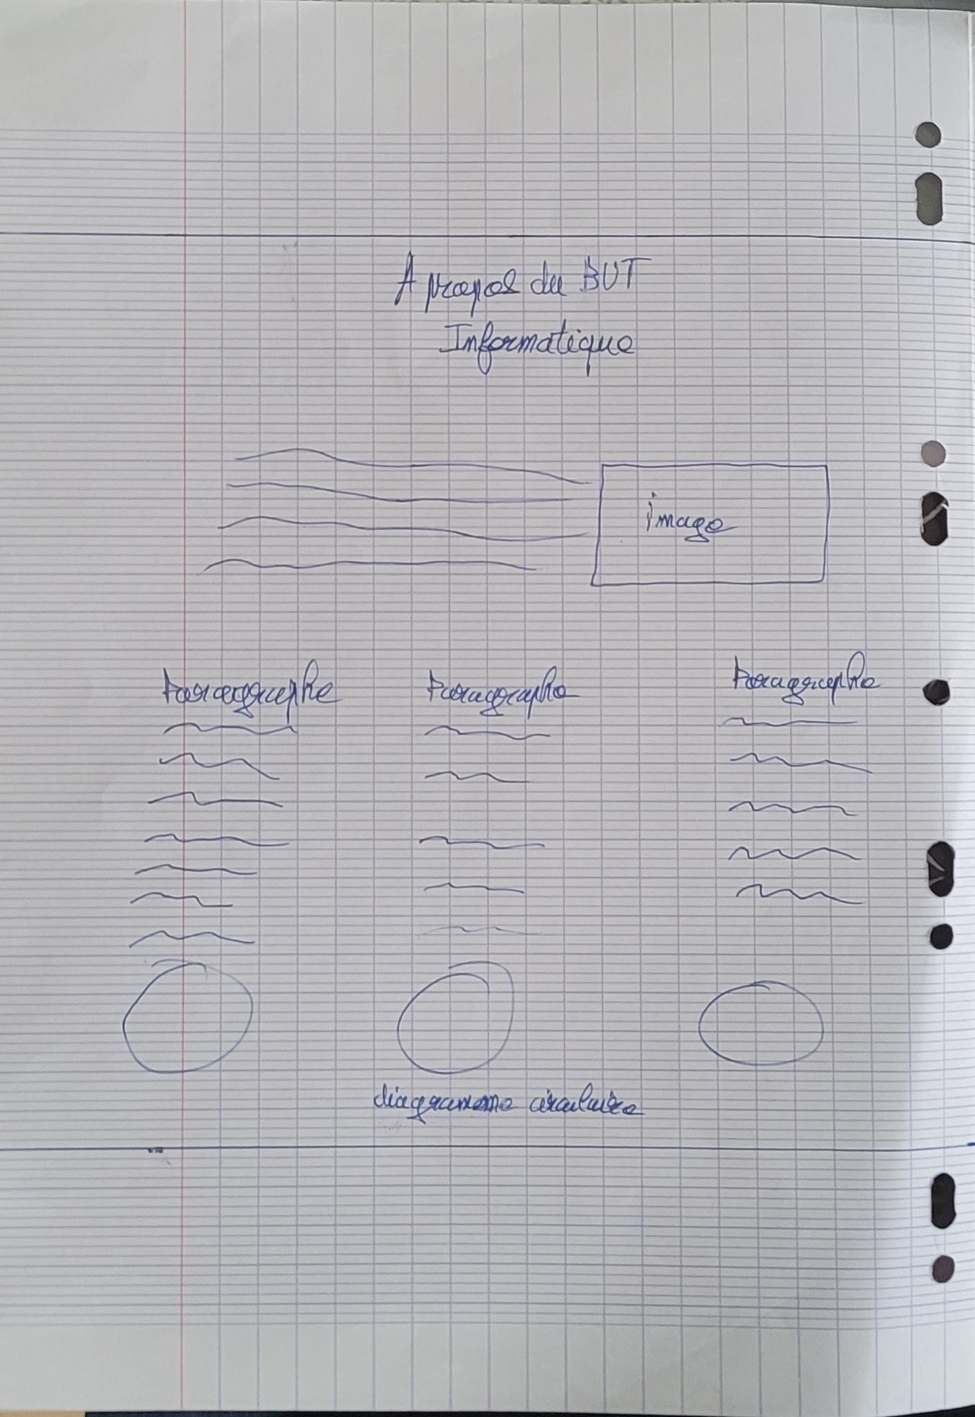 A propos du BUT
Informatique
image
Paragraphe
Paragraphe
Paragraphe
diagramme circulaire